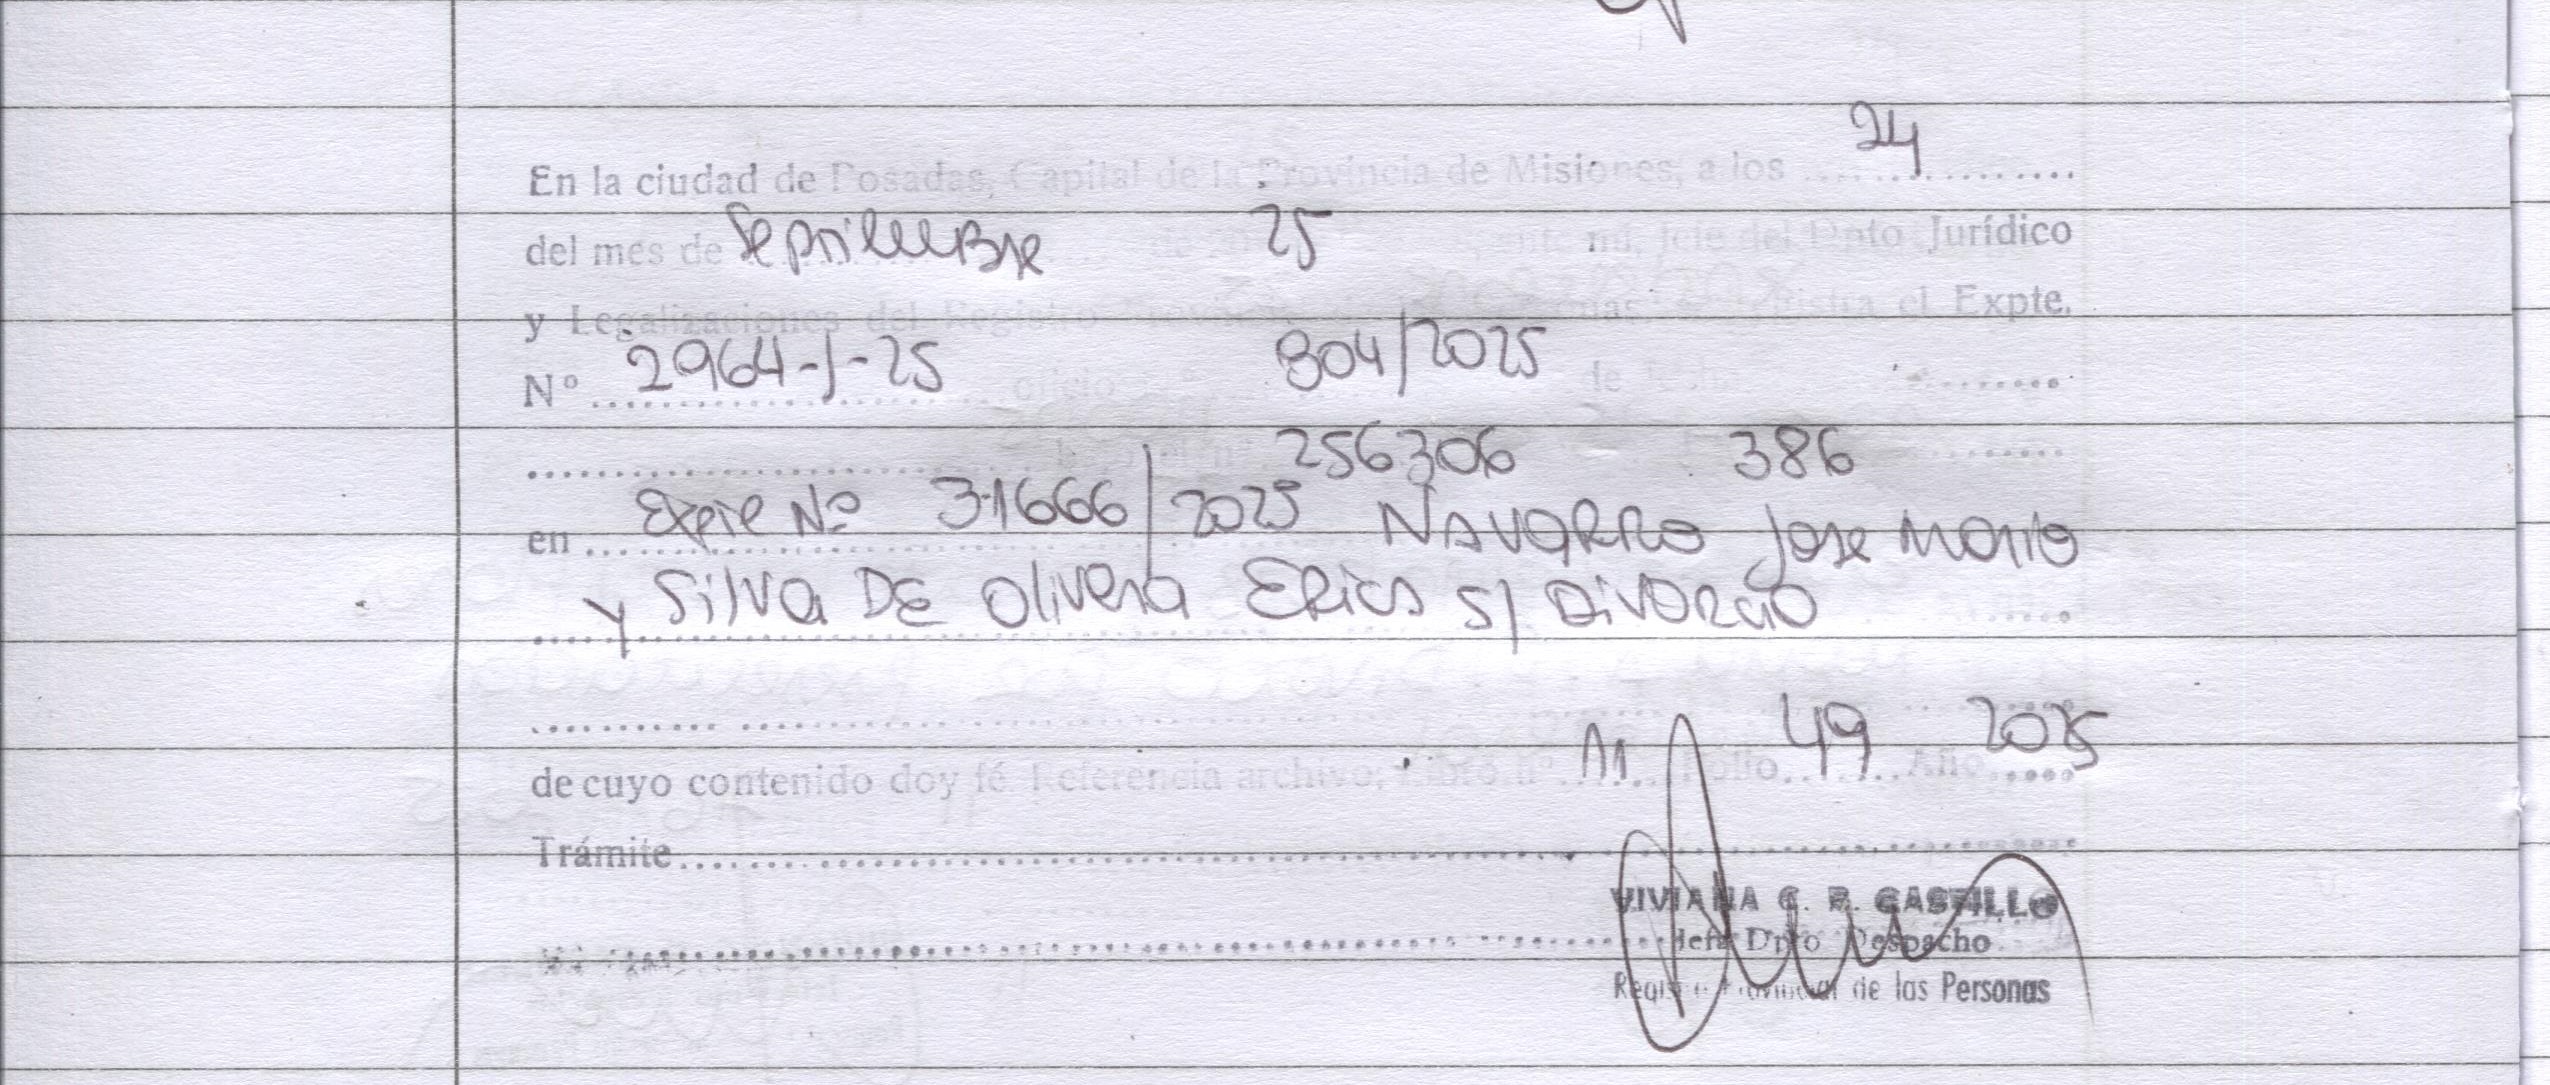 24
En la ciudad de Posadas, Capital de la Provincia de Misiones, a los ................
del mes de Septiembre de 25 mí, Jefe del Dpto Jurídico
y Legalizaciones del Registro el Expte.
Nº 2964-J-25 oficio 804/2025 de fecha
256306 386
en Expte Nº 31666/2025 NAVARRO Jose Mario
y Silva DE Olivera Erica S/ DiVORCIO
de cuyo contenido doy fé. Referencia archivo; Libro nº 11 Folio 49 Año 2025
Trámite
VIVIANA C. R. CASTILLO
Jefa Dpto Despacho
Registro Provincial de las Personas